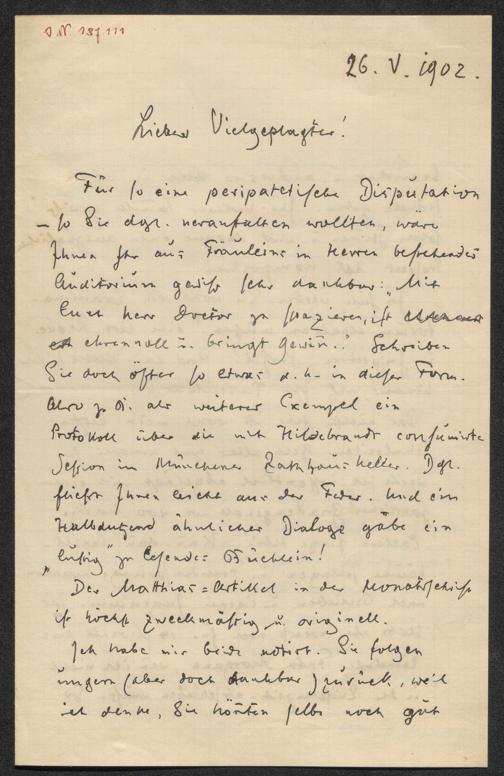 I.N. 137111
26. V. 1902.
Lieber Vielgeplagter!
Für so eine peripatetische Disputation
– so Sie dgl. veranstalten wollten, wäre
Ihnen Ihr aus Fräuleins u Herren bestehendes
Auditorium gewiß sehr dankbar: „Mit
Euch Herr Doctor zu spazieren, ist
ehrenvoll u. bringt Gewinn." Schreiben
Sie doch öfter so etwas d. h. in dieser Form.
Also z. B. als weiteres Exempel ein
Protokoll über die mit Hildebrandt
Session im Münchener Rathhauskeller. Dgl.
fließt Ihnen leicht aus der Feder. Und ein
Halbdutzend ähnlicher Dialoge gäbe ein
„lustig" zu lesendes Büchlein!
Der Matthias-Artikel in der Monatschrift
ist höchst zweckmäßig u. originell.
Ich habe mir beide notirt. Sie folgen
ungern (aber doch dankbar) zurück, weil
ich denke, Sie könnten selbe noch gut